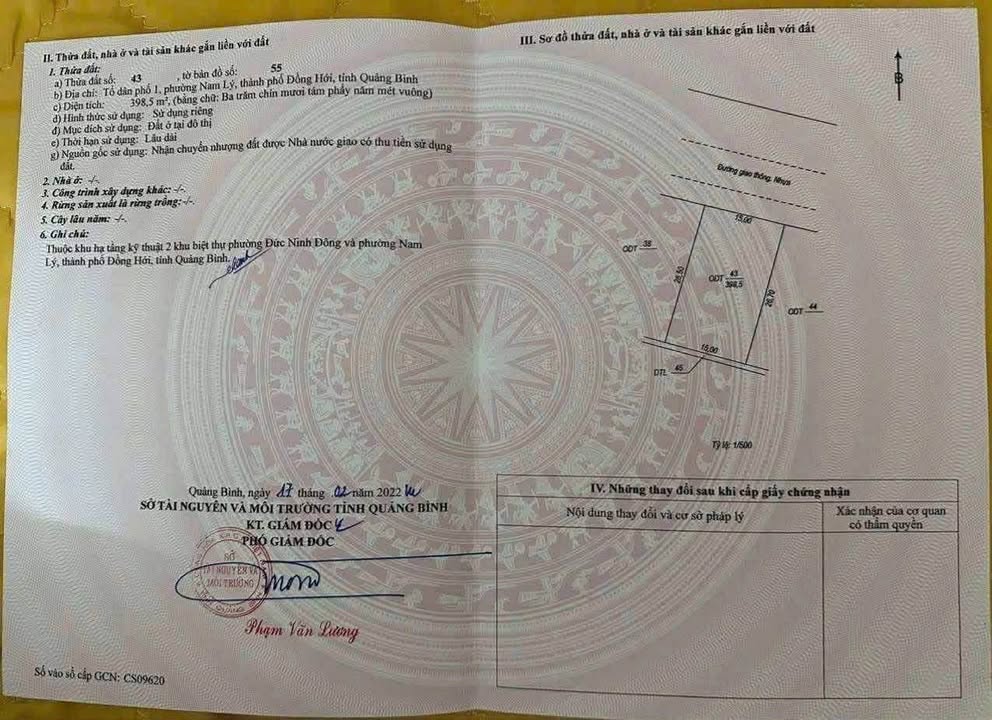 II. Thửa đất, nhà ở và tài sản khác gắn liền với đất
1. Thửa đất:
a) Thửa đất số: 43 , tờ bản đồ số: 55
b) Địa chỉ: Tổ dân phố 1, phường Nam Lý, thành phố Đồng Hới, tỉnh Quảng Bình
c) Diện tích: 398,5 m², (bằng chữ: Ba trăm chín mươi tám phẩy năm mét vuông)
d) Hình thức sử dụng: Sử dụng riêng
đ) Mục đích sử dụng: Đất ở tại đô thị
e) Thời hạn sử dụng: Lâu dài
g) Nguồn gốc sử dụng: Nhận chuyển nhượng đất được Nhà nước giao có thu tiền sử dụng
đất.
2. Nhà ở: -/-.
3. Công trình xây dựng khác: -/-.
4. Rừng sản xuất là rừng trồng: -/-.
5. Cây lâu năm: -/-.
6. Ghi chú:
Thuộc khu hạ tầng kỹ thuật 2 khu biệt thự phường Đức Ninh Đông và phường Nam
Lý, thành phố Đồng Hới, tỉnh Quảng Bình.
Quảng Bình, ngày 17 tháng 02 năm 2022
SỞ TÀI NGUYÊN VÀ MÔI TRƯỜNG TỈNH QUẢNG BÌNH
KT. GIÁM ĐỐC
PHÓ GIÁM ĐỐC
SỞ
TÀI NGUYÊN VÀ
MÔI TRƯỜNG
Phạm Văn Lương
Số vào sổ cấp GCN: CS09620
III. Sơ đồ thửa đất, nhà ở và tài sản khác gắn liền với đất
B
Đường giao thông: Nhựa
15,00
ODT 38
26,50
ODT 43
398,5
26,70
ODT 44
15,00
DTL 45
Tỷ lệ: 1/500
IV. Những thay đổi sau khi cấp giấy chứng nhận
Nội dung thay đổi và cơ sở pháp lý
Xác nhận của cơ quan
có thẩm quyền